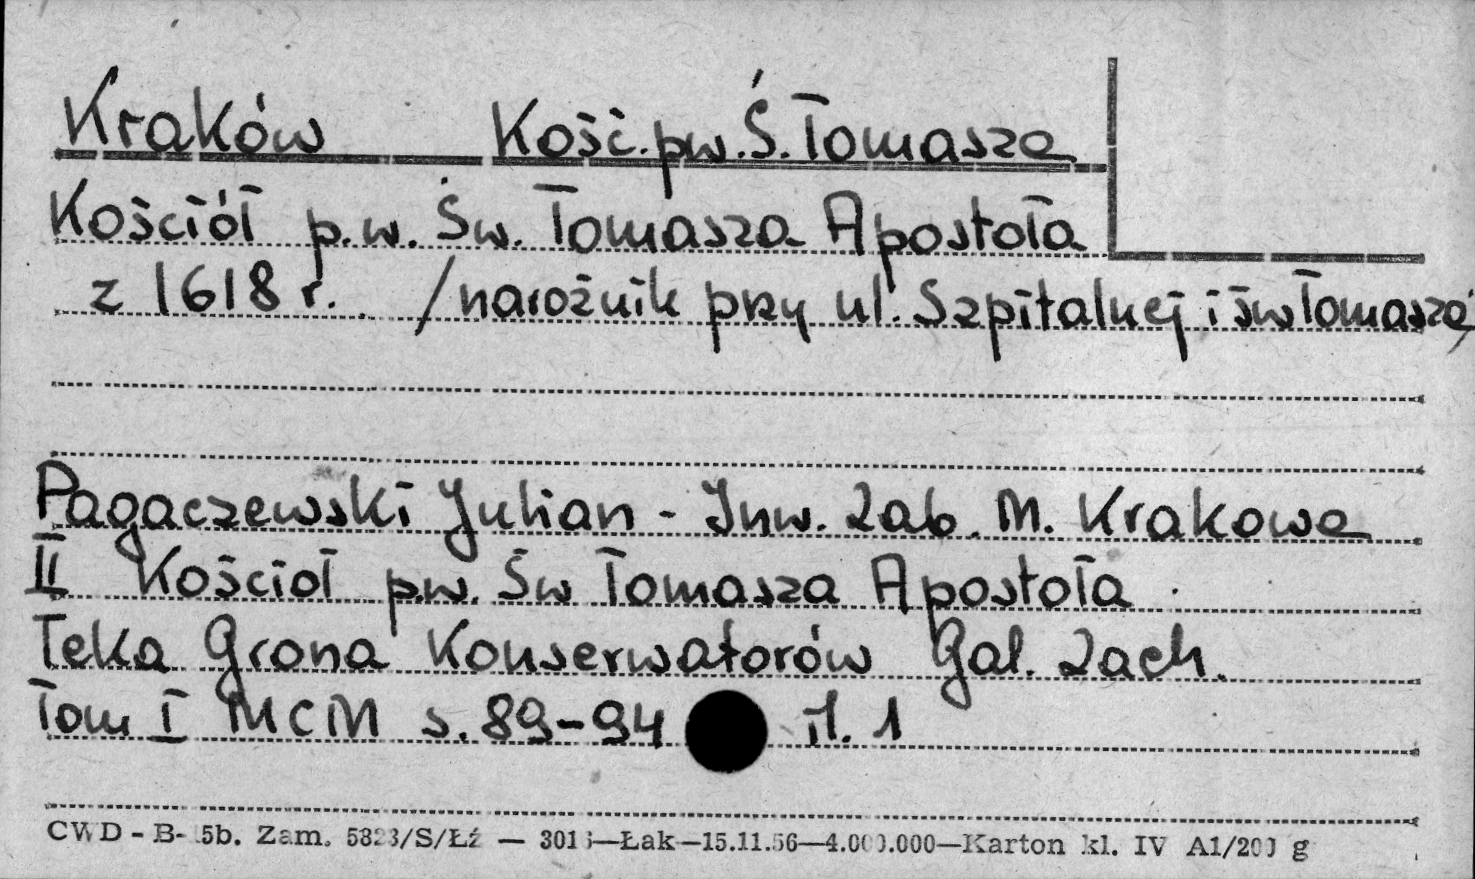 Kraków Kość. pw. Ś. Tomasza
Kościół p.w. Św. Tomasza Apostoła
z 1618 r. /narożnik przy ul. Szpitalnej i św Tomasza/
Pagaczewski Julian - Inw. Zab. M. Krakowa
II Kościoł p.w. Św Tomasza Apostoła
Teka Grona Konserwatorów Gal. Zach.
Tom I MCM s. 89-94 il. 1
CWD - B- 5b. Zam. 5823/S/Łź — 3016—Łak—15.11.56—4.000.000—Karton kl. IV A1/200 g